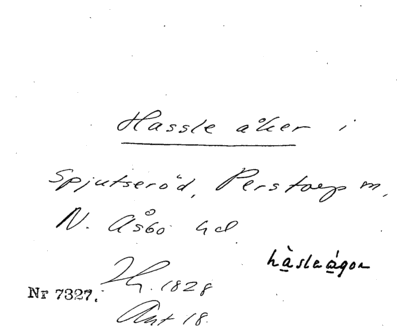 Hassle åker i
Spjutseröd, Perstorp m,
N. Åsbo hd
hàsleágor
Nr 7327.
H. 1828
Akt 18.